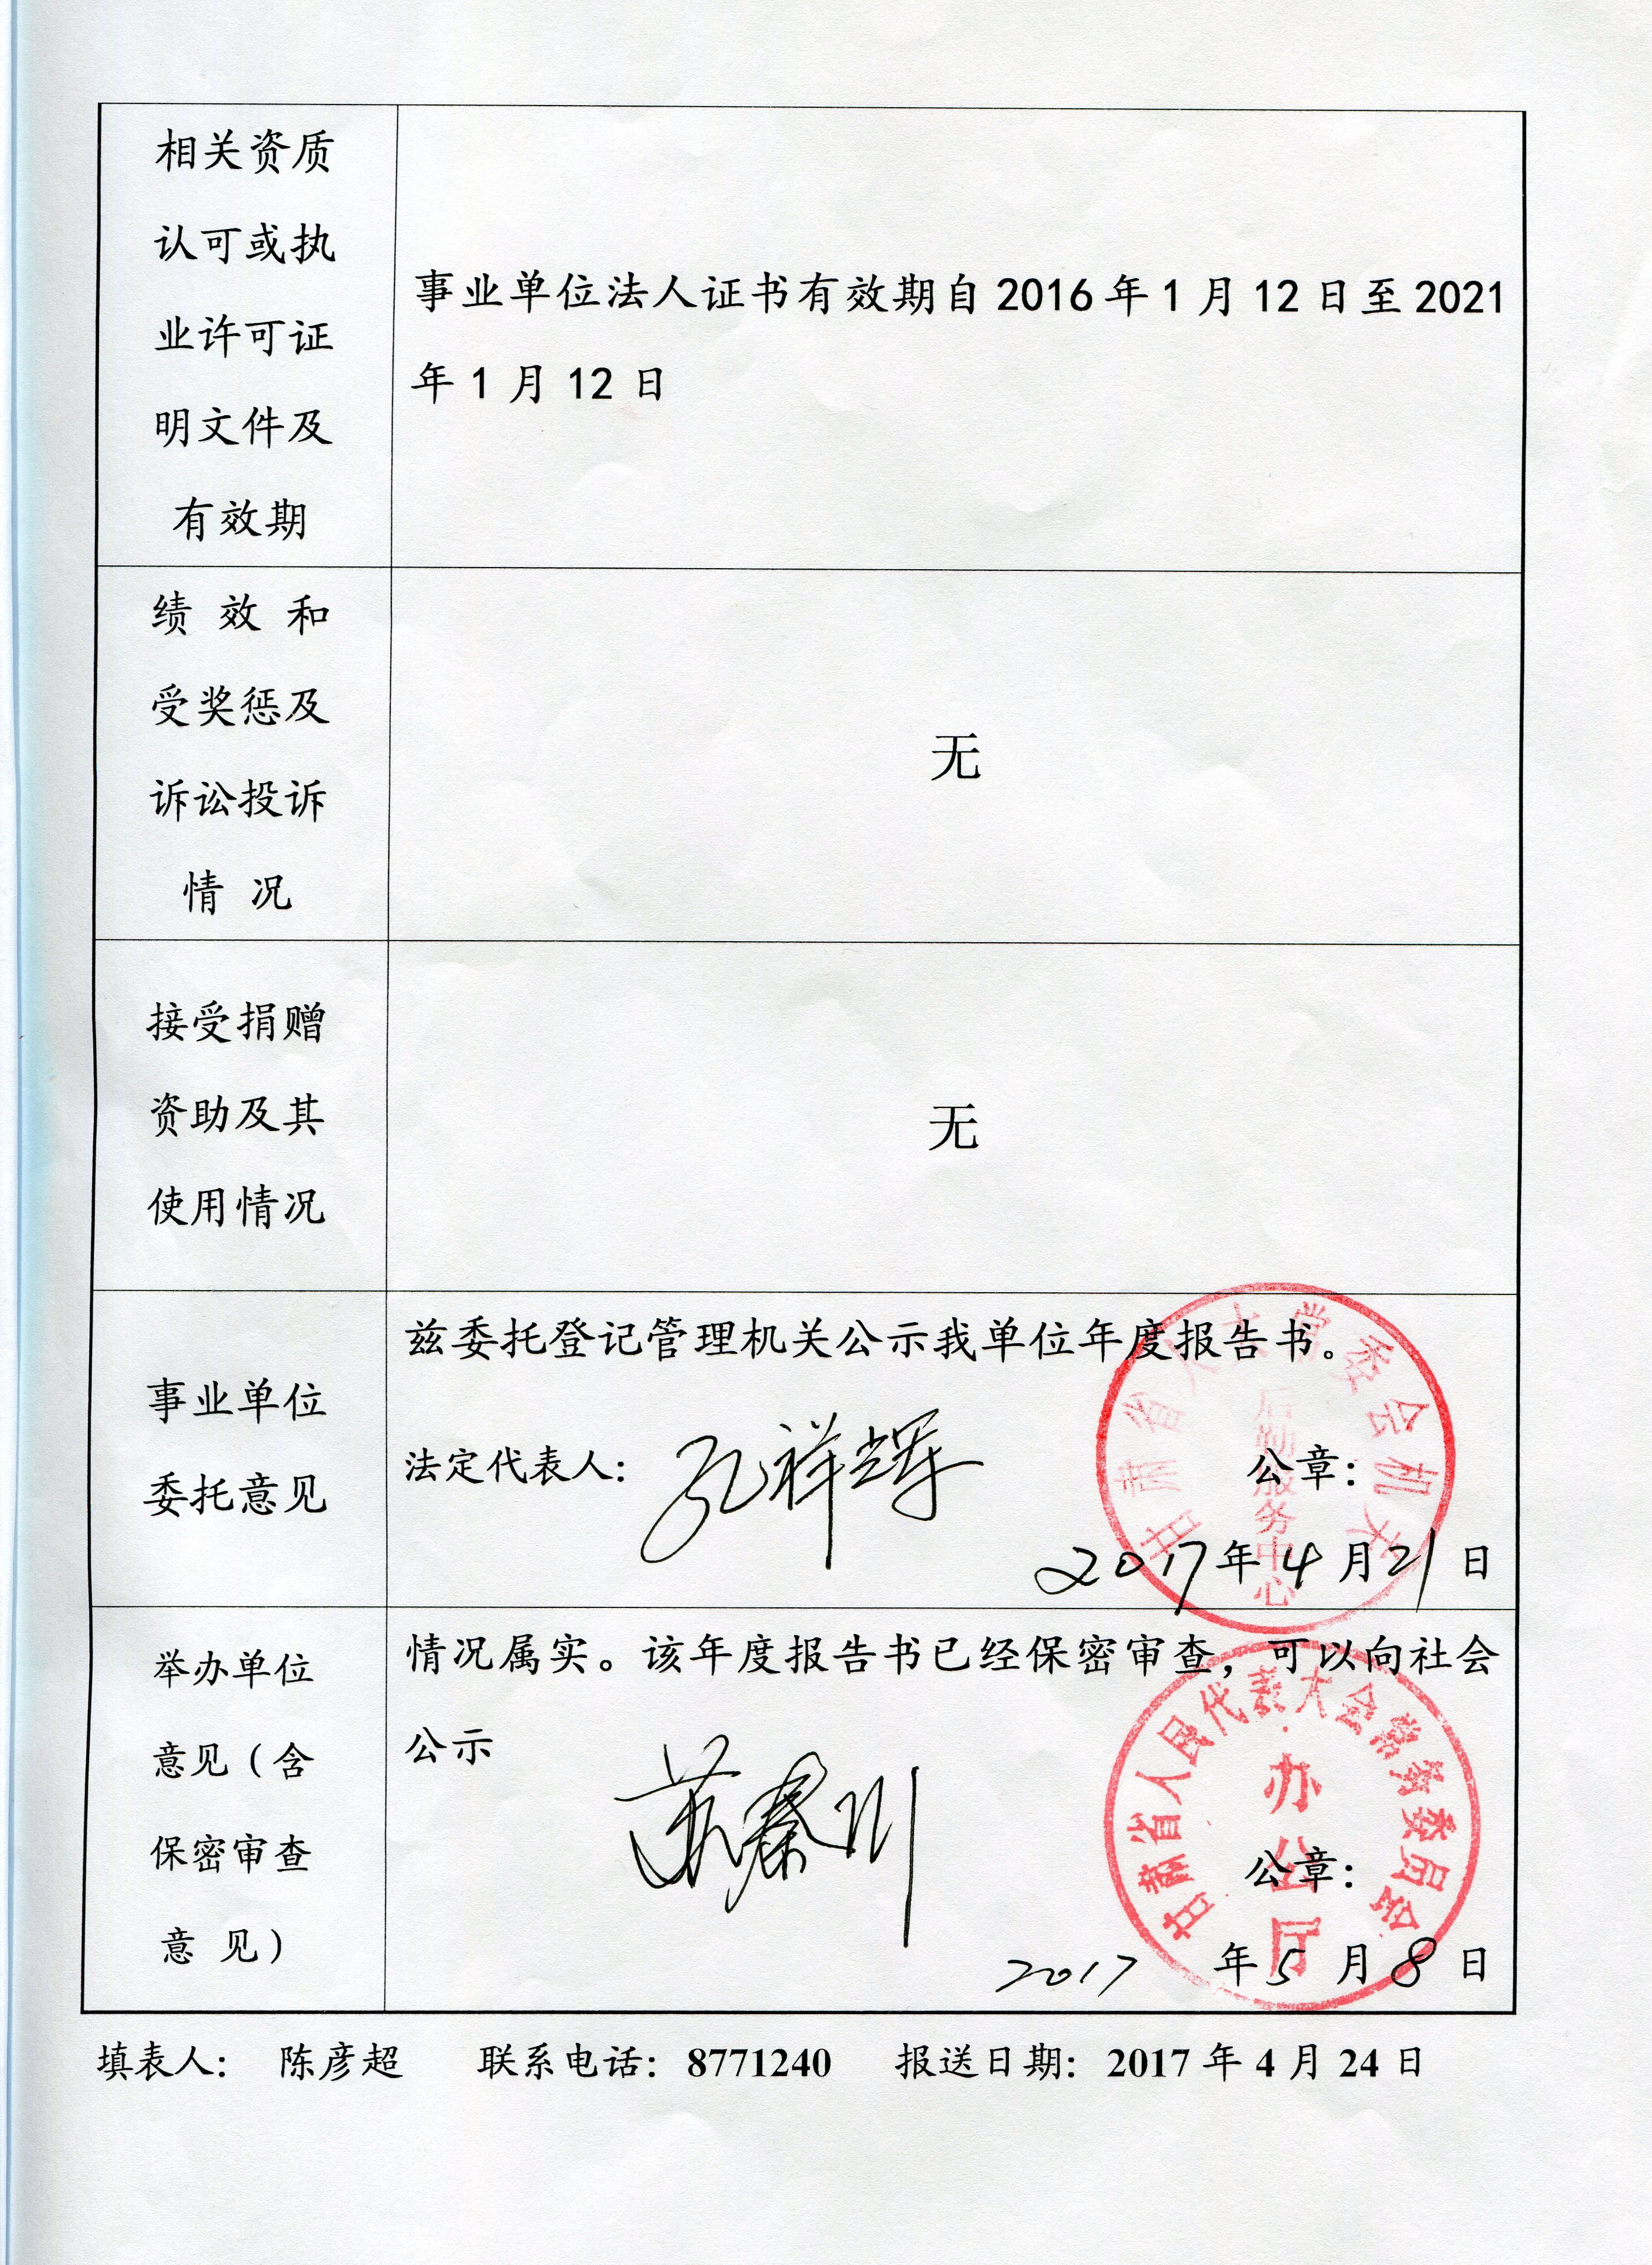 相关资质
认可或执
业许可证
明文件及
有效期
事业单位法人证书有效期自2016年1月12日至2021
年1月12日
绩效和
受奖惩及
诉讼投诉
情况
无
接受捐赠
资助及其
使用情况
无
事业单位
委托意见
兹委托登记管理机关公示我单位年度报告书。
法定代表人：孔祥辉
公章：
2017年4月21日
甘肃省人大常委会机关
后勤服务中心
举办单位
意见（含
保密审查
意见）
情况属实。该年度报告书已经保密审查，可以向社会
公示
苏秦川
公章：
2017年5月8日
甘肃省人民代表大会常务委员会
办公厅
填表人： 陈彦超 联系电话：8771240 报送日期：2017年4月24日